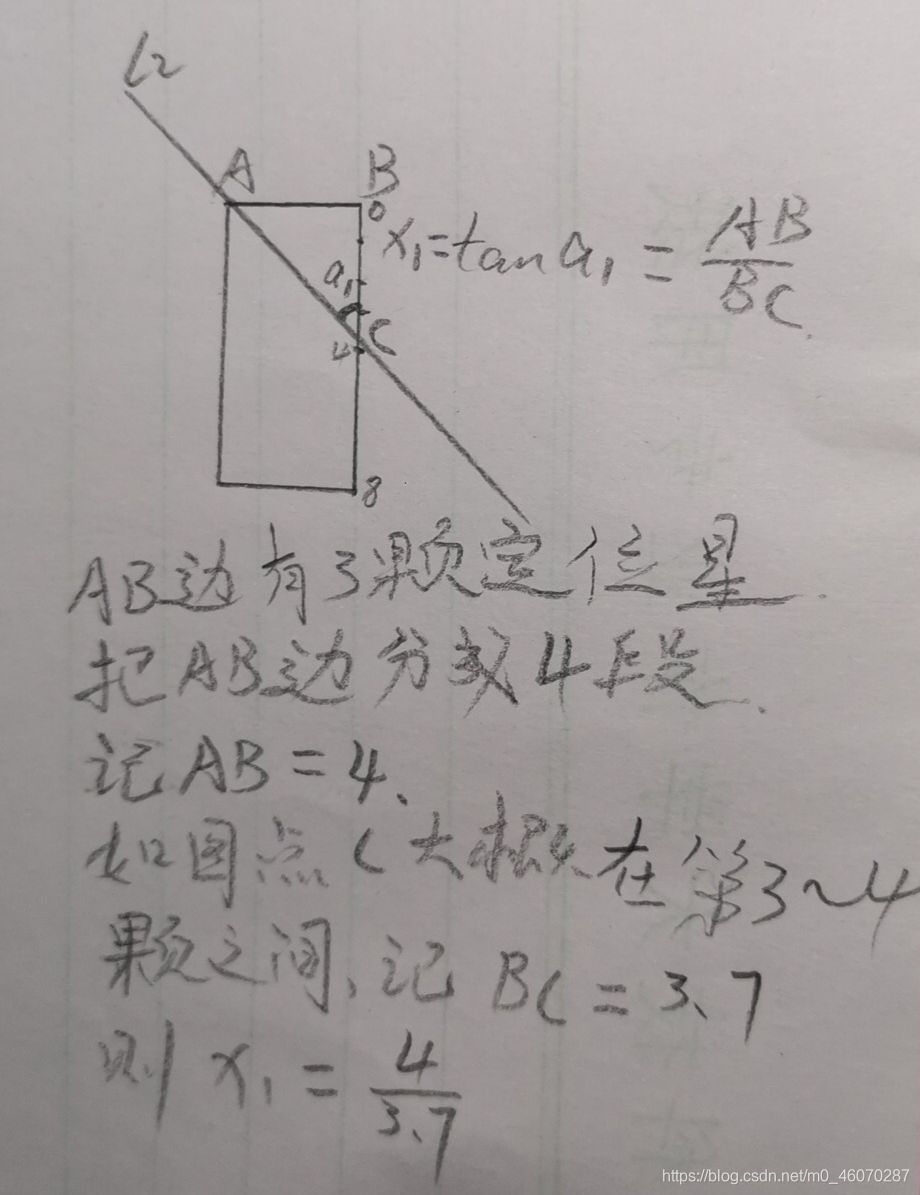 l2
A
B
0
x₁=tan a₁ = AB/BC
a₁
C
4
8
AB边有3颗定位星.
把AB边分成4段.
记AB=4、
如图点C大概在第3~4
颗之间、记 BC=3.7
则 x₁ = 4/3.7
https://blog.csdn.net/m0_46070287